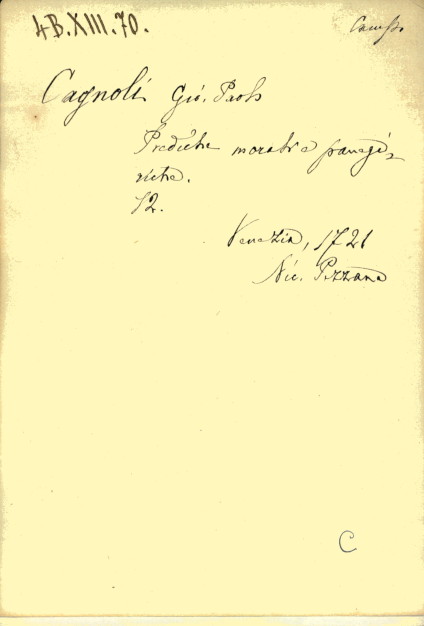 4B.XIII.70.
Camp.
Cagnoli Gio. Paolo
Prediche morali e panegi-
riche.
12.
Venezia, 1721
Nic. Pezzana
C